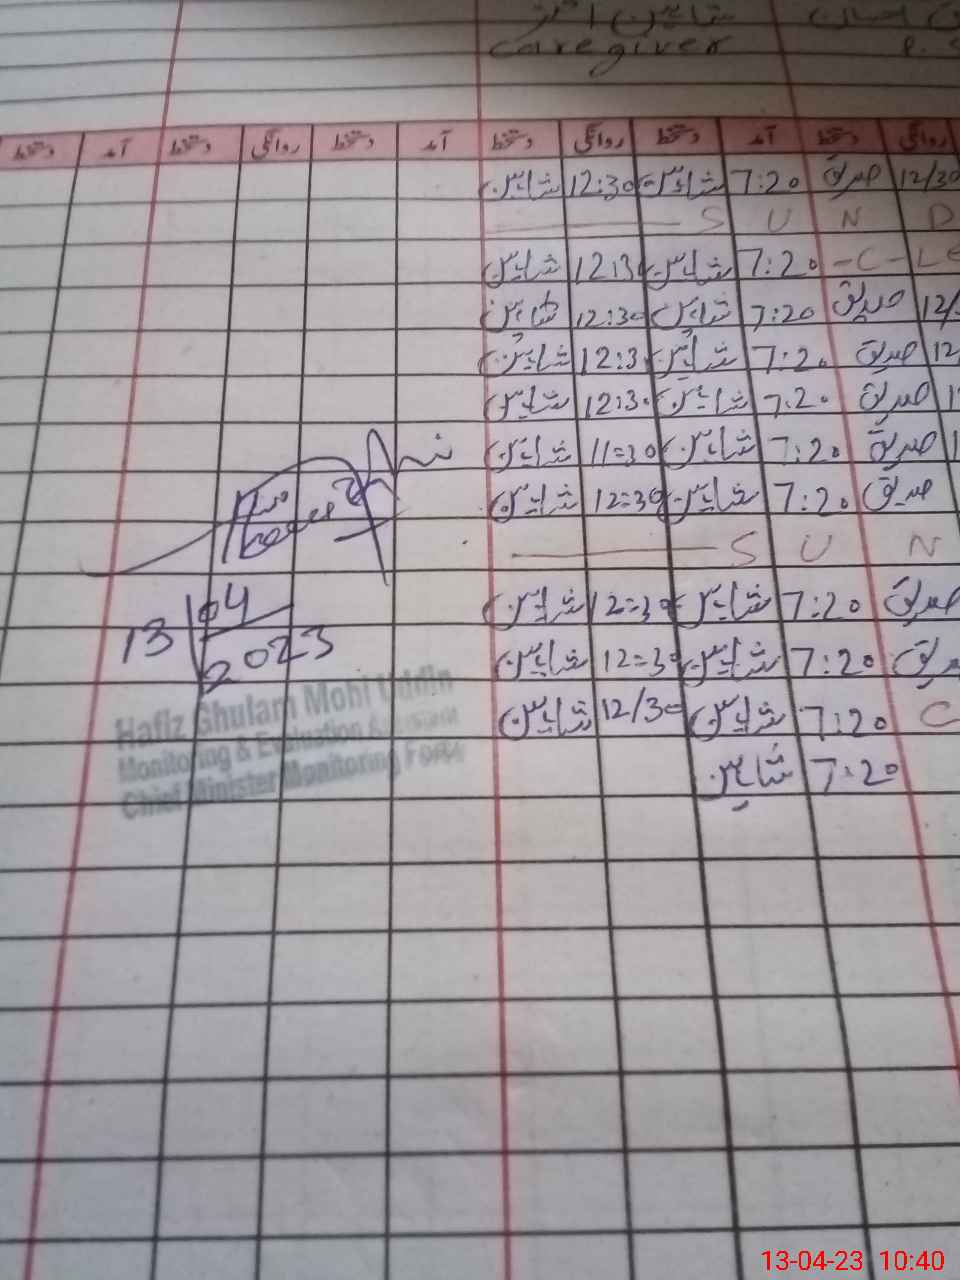 شاہین اختر
caregiver
روانگی دستخط آمد دستخط روانگی دستخط آمد دستخط روانگی دستخط آمد دستخط
12/30 صدیق 7:20 شاہین 12:30 شاہین
S U N D
C-LE 7:20 شاہین 12:30 شاہین
12/ صدیق 7:20 شاہین 12:30 شاہین
12 صدیق 7:20 شاہین 12:30 شاہین
1 صدیق 7:20 شاہین 12:30 شاہین
1 صدیق 7:20 شاہین 11=30 شاہین
صدیق 7:20 شاہین 12=30 شاہین
S U N
صدیق 7:20 شاہین 12=30 شاہین
صدیق 7:20 شاہین 12=30 شاہین
C 7:20 شاہین 12/30 شاہین
7:20 شاہین
13/04/2023
Hafiz Ghulam Mohi Uddin
Monitoring & Evaluation Assistant
Chief Minister Monitoring Force
13-04-23 10:40